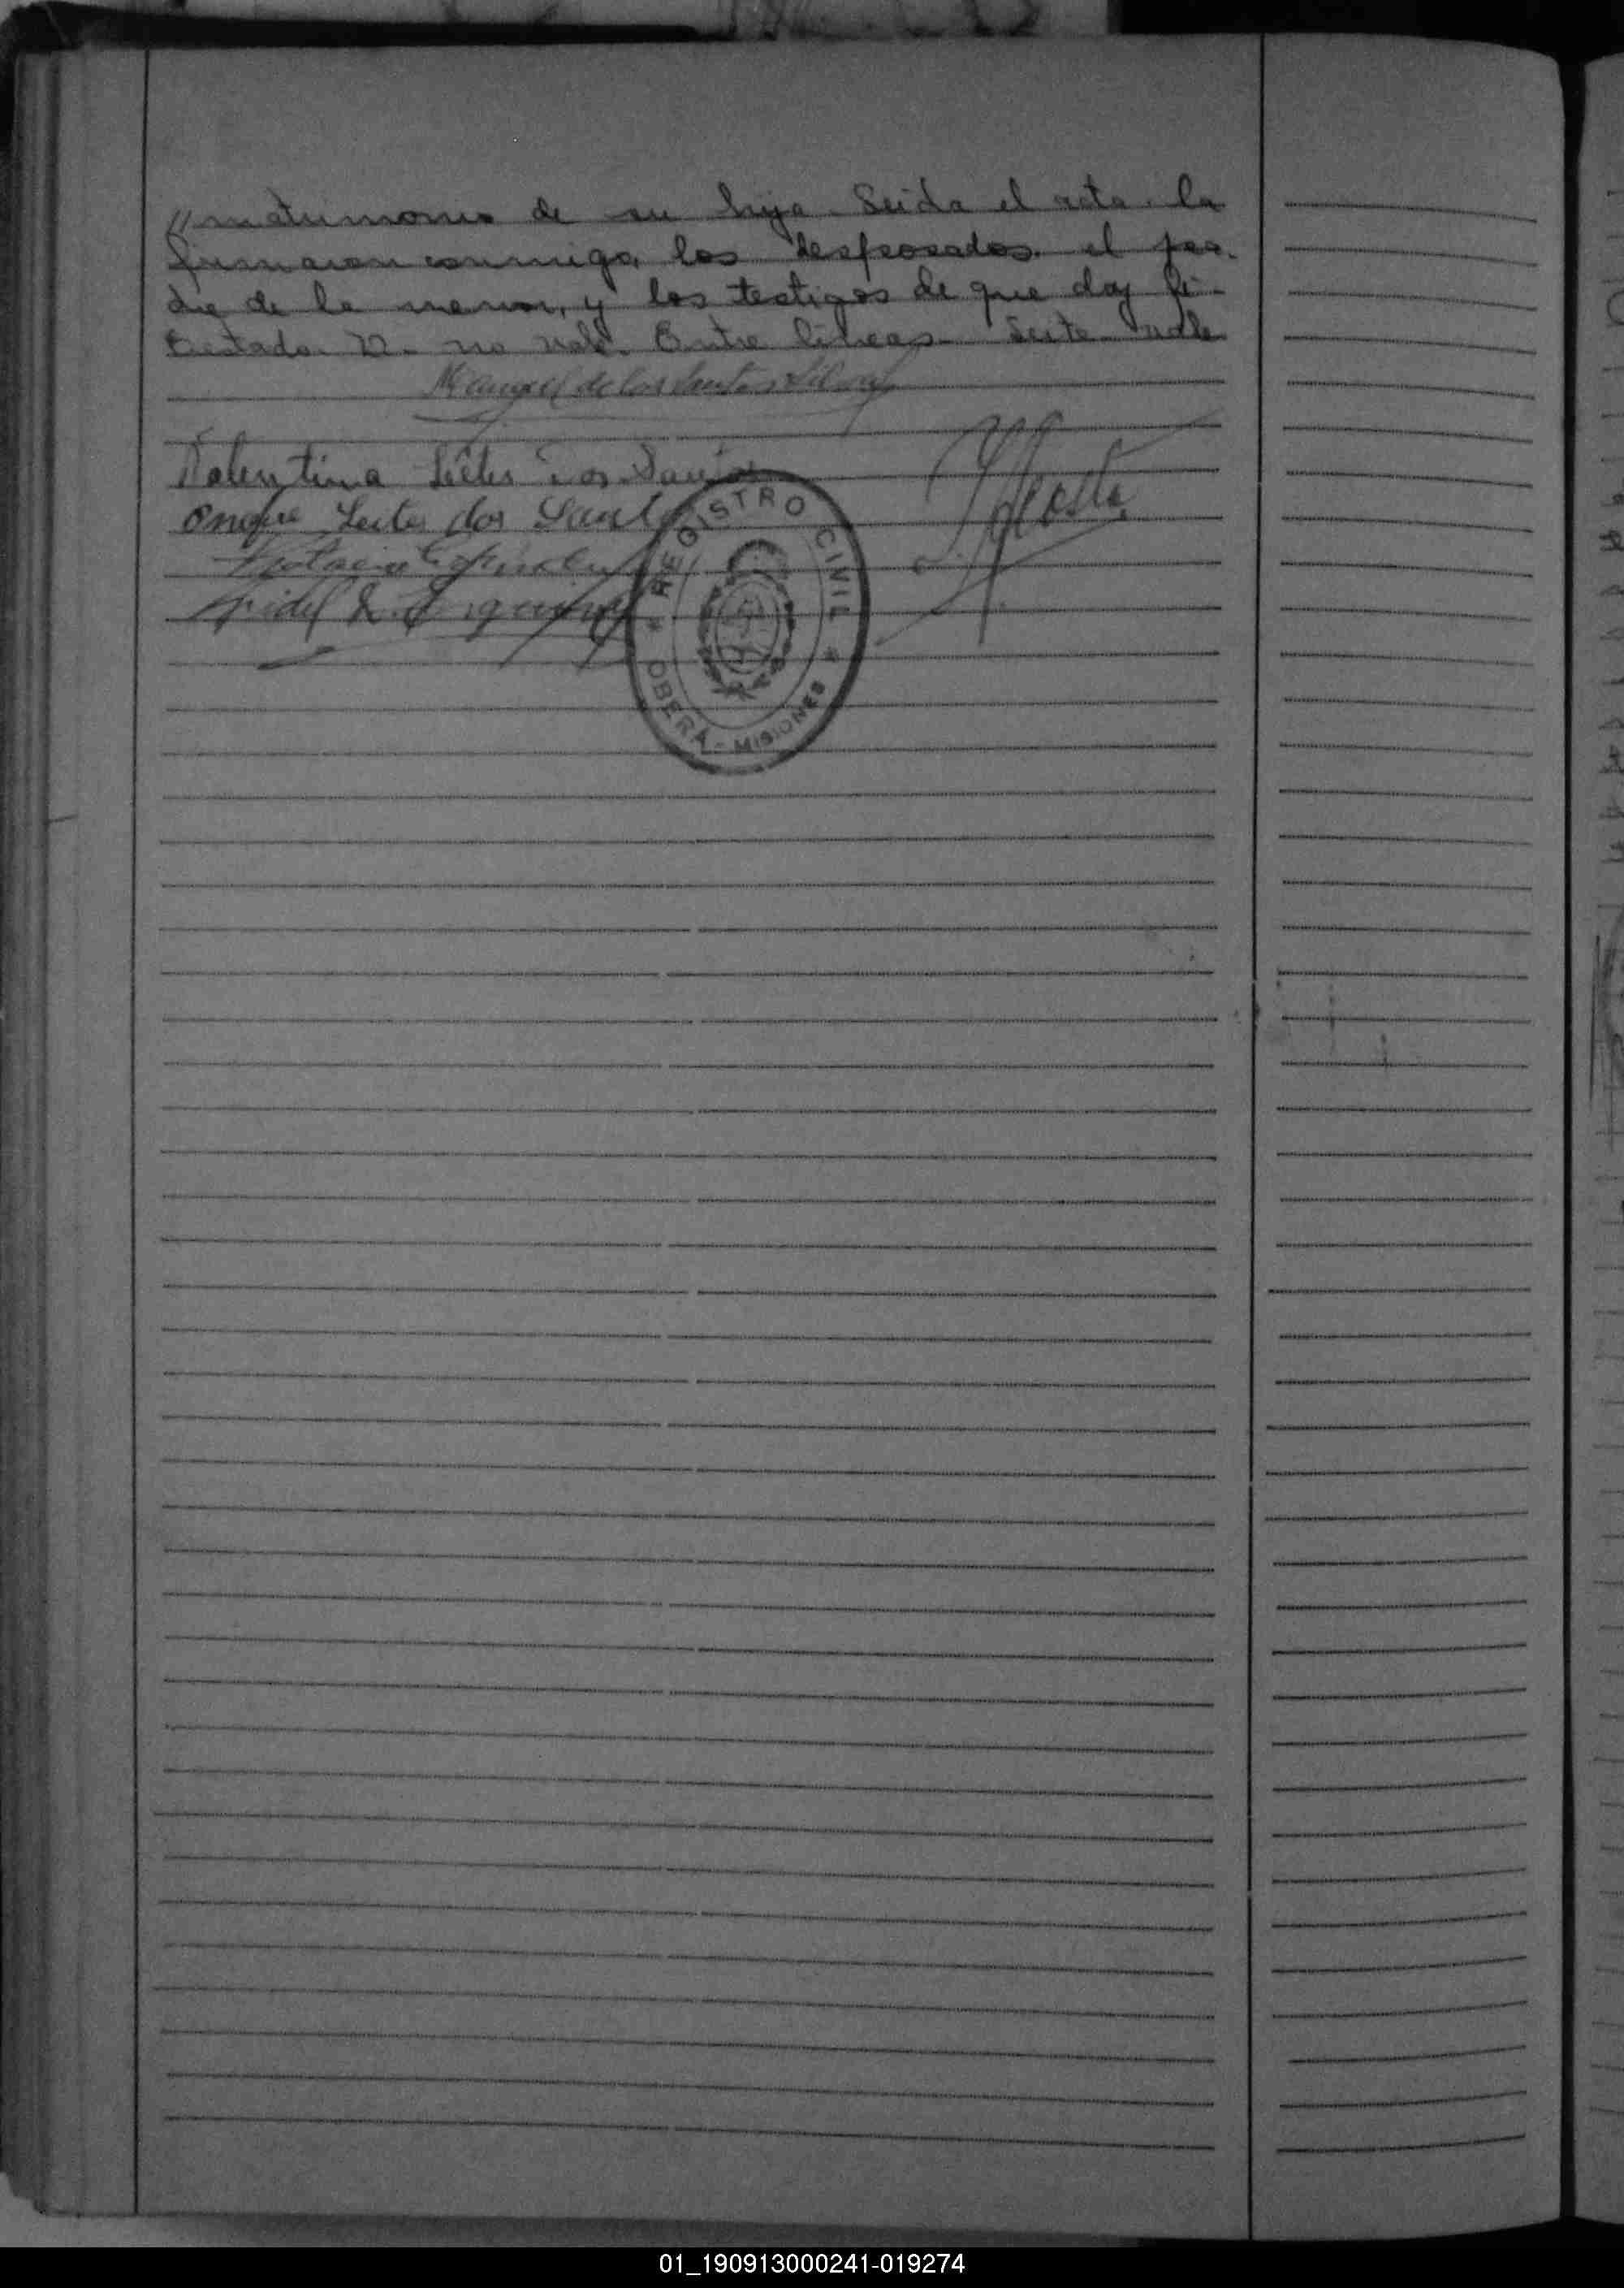 // matrimonio de su hija. Leida el acta. la
firmaron conmigo, los desposados. el pa-
dre de la menor, y los testigos de que doy fé-
Testado. D. no vale. Entre lineas- Leite- vale
Manuel de los Santos Silva
Valentina Leites Dos Santos
Leites dos Sant
Fidel
REGISTRO CIVIL
OBERÁ - MISIONES
01_190913000241-019274